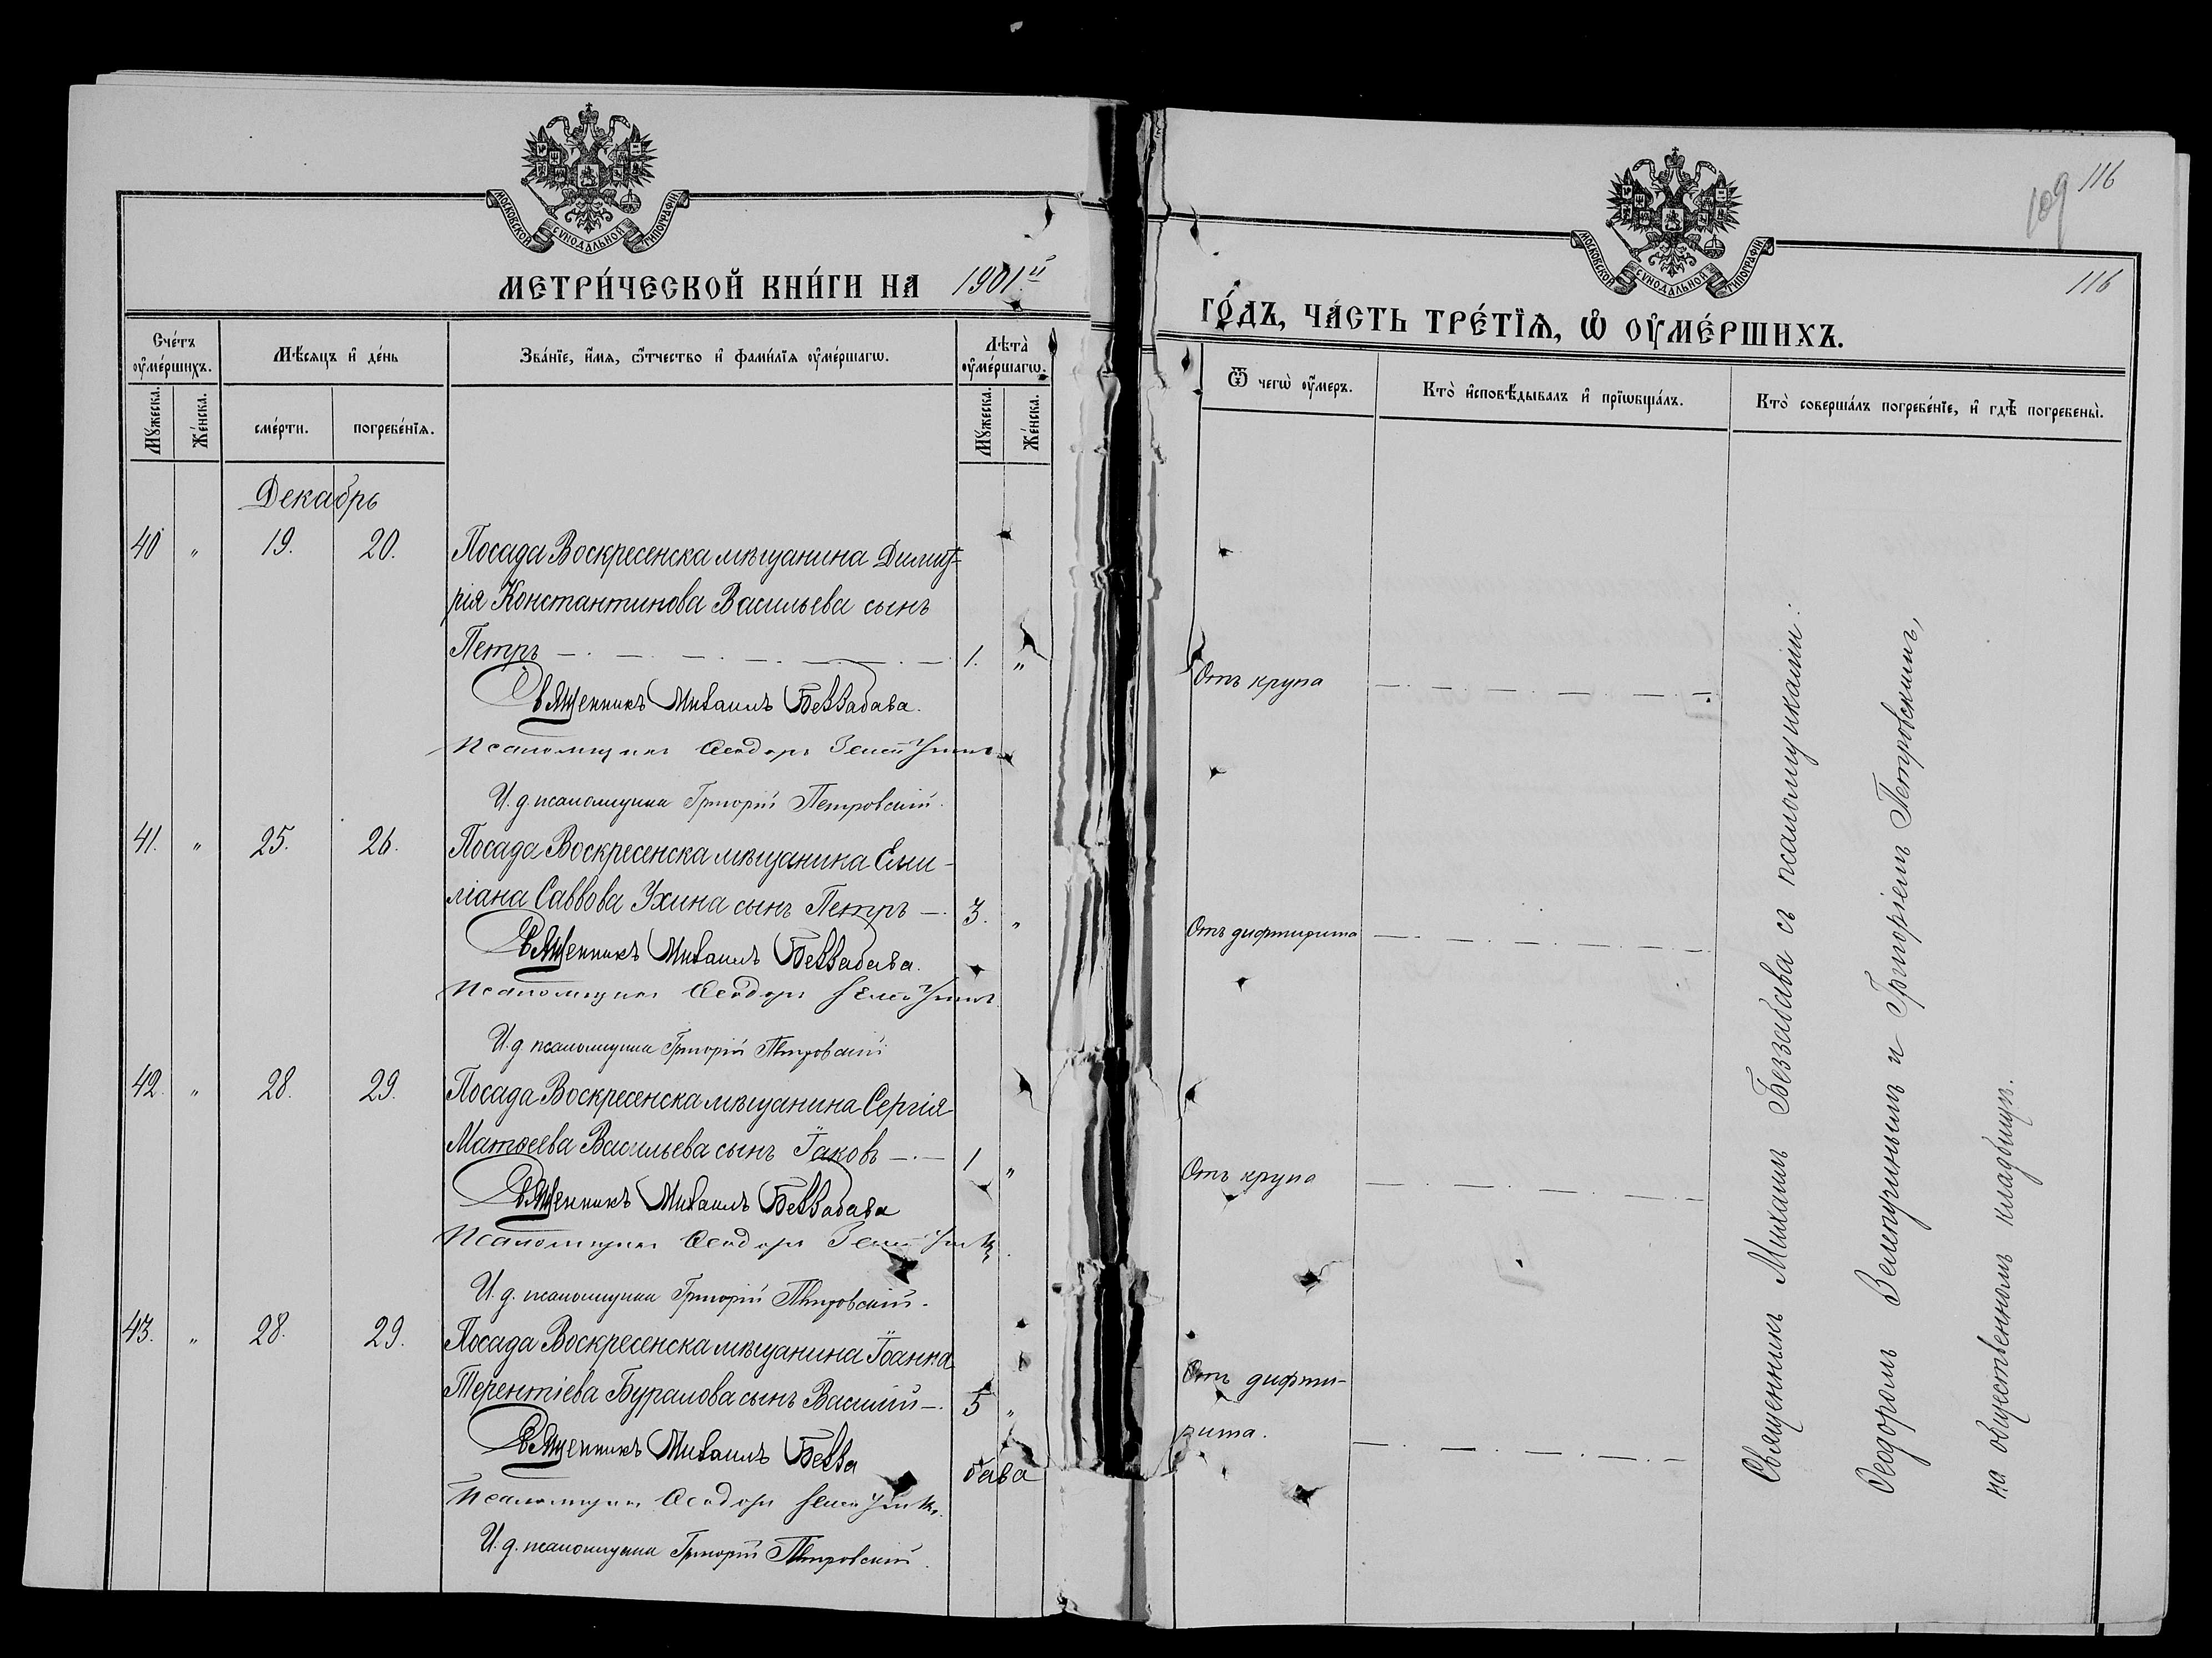 МОСКОВСКОЙ СѴНОДАЛЬНОЙ ТИПОГРАФІИ
МЕТРИ́ЧЕСКОЙ КНИ́ГИ НА 1901.й
Сче́тъ ᲂу҆ме́ршихъ.
Мѣ́сяцъ и҆ де́нь
Зва́нїе, и҆́мя, ѻ҆́тчество и҆ фами́лїя ᲂу҆ме́ршагѡ.
Лѣта̀ ᲂу҆ме́ршагѡ.
Му́жеска.
Же́нска.
сме́рти.
погребе́нїѧ.
Му́жеска.
Же́нска.
Декабрь
40 " 19. 20. Посада Воскресенска мѣщанина Димит-
рія Константинова Васильева сынъ
Петръ — . — . — 1. "
Священникъ Михаилъ Беззабава.
Псаломщикъ Ѳеодоръ
И. д. псаломщика Григорій Петровскій.
41. " 25. 26. Посада Воскресенска мѣщанина Еми-
ліана Саввова Ухина сынъ Петръ — . 3. "
Священникъ Михаилъ Беззабава.
Псаломщикъ Ѳеодоръ
И. д. псаломщика Григорій Петровскій
42. " 28. 29. Посада Воскресенска мѣщанина Сергія
Матѳеева Васильева сынъ Іаковъ — . — 1 "
Священникъ Михаилъ Беззабава
Псаломщикъ Ѳеодоръ
И. д. псаломщика Григорій Петровскій.
43. " 28. 29. Посада Воскресенска мѣщанина Іоанна
Терентіева сынъ Василій — . 5 "
Священникъ Михаилъ Безза бава
Псаломщикъ Ѳеодоръ
И. д. псаломщика Григорій Петровскій.
109 116
МОСКОВСКОЙ СѴНОДАЛЬНОЙ ТИПОГРАФІИ
116
ГО́ДЪ, ЧА́СТЬ ТРЕ́ТЇѦ, Ѡ҆ ОУ҆МЕ́РШИХЪ.
Ѿ чегѡ̀ ᲂу҆́меръ.
Кто̀ и҆сповѣ́дывалъ и҆ прїѡбща́лъ.
Кто̀ соверша́лъ погребе́нїе, и҆ гдѣ̀ погребены̀.
Отъ крупа
Отъ дифтирита
Отъ крупа
Отъ дифти-
рита.
Священникъ Михаилъ Беззабава съ псаломщиками:
Ѳеодоромъ и Григоріемъ Петровскимъ,
на общественномъ кладбищѣ.